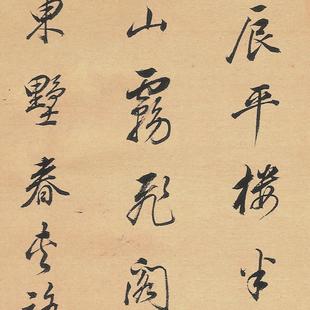 辰平楼半
山霧飛閣
東墅春夾